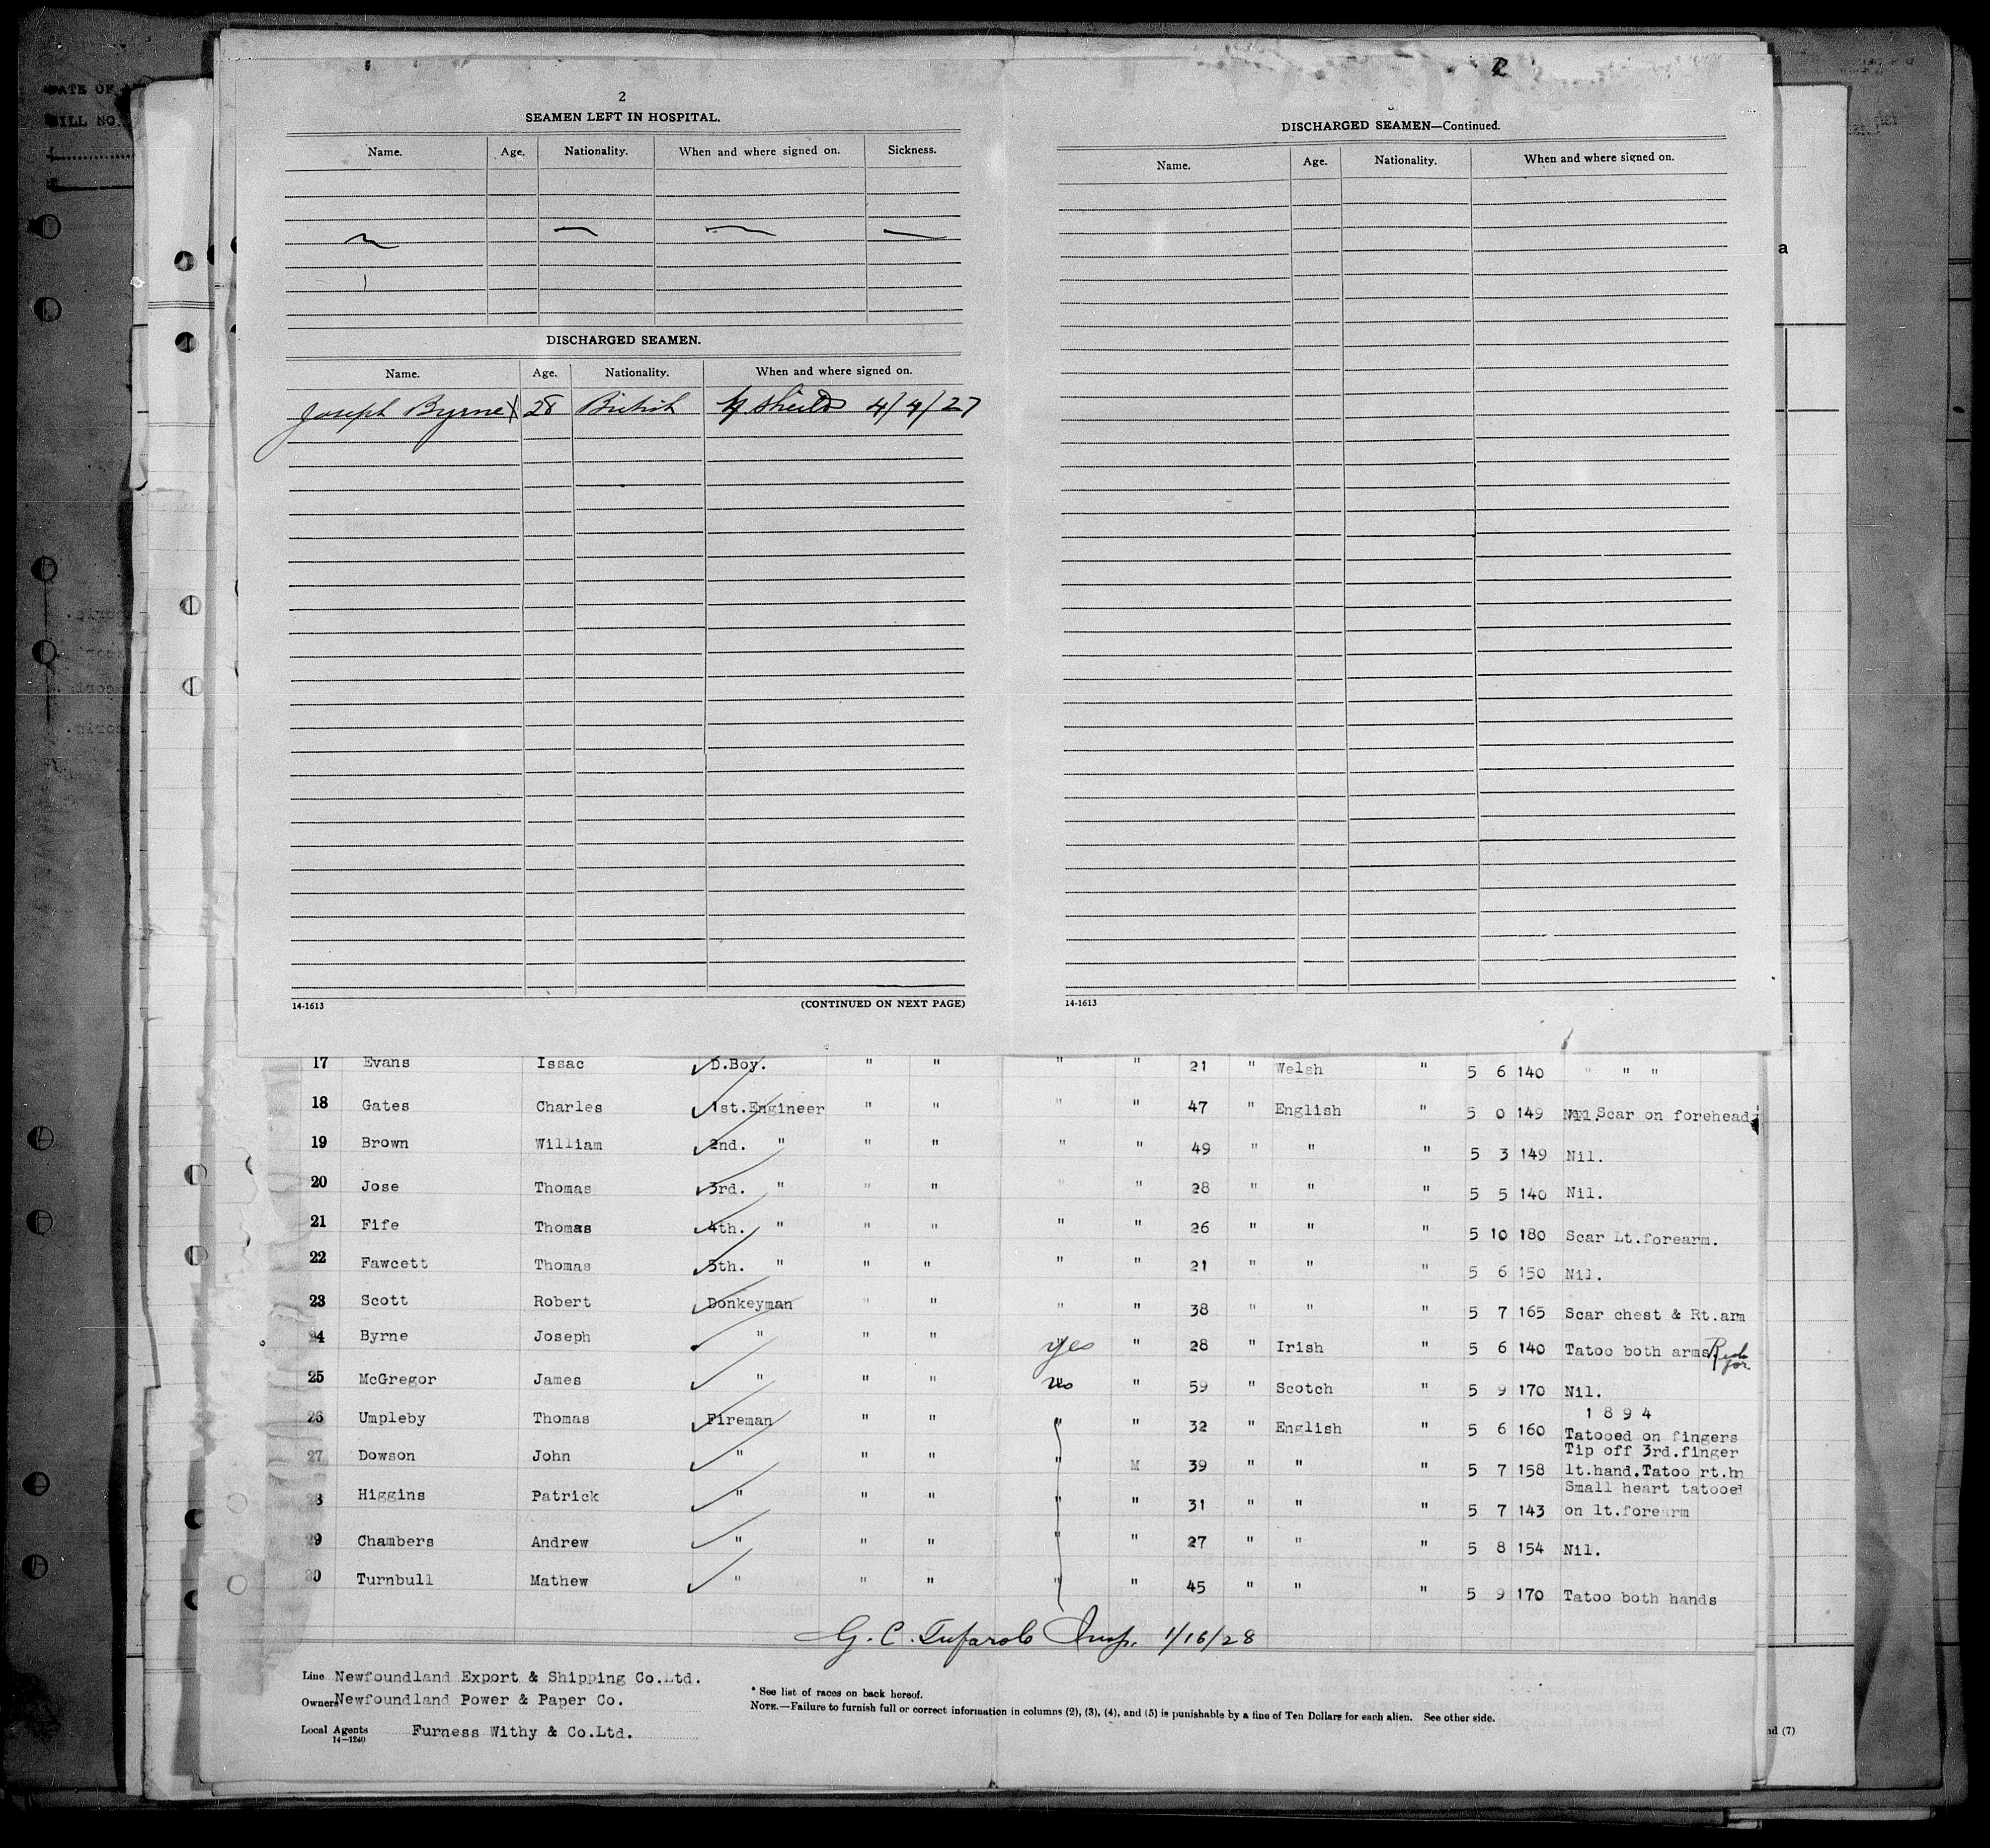 DATE OF
BILL NO.
2
SEAMEN LEFT IN HOSPITAL.
Name. Age. Nationality. When and where signed on. Sickness.
DISCHARGED SEAMEN.
Name. Age. Nationality. When and where signed on.
Joseph Byrne X 28 British Shields 4/4/27
14-1613 (CONTINUED ON NEXT PAGE)
2
DISCHARGED SEAMEN—Continued.
Name. Age. Nationality. When and where signed on.
14-1613
a
17 Evans Issac D.Boy. " " " " 21 " Welsh " 5 6 140 " " "
18 Gates Charles 1st.Engineer " " " " 47 " English " 5 0 149 Scar on forehead
19 Brown William 2nd. " " " " " 49 " " " 5 3 149 Nil.
20 Jose Thomas 3rd. " " " " " 28 " " " 5 5 140 Nil.
21 Fife Thomas 4th. " " " " " 26 " " " 5 10 180 Scar Lt.forearm.
22 Fawcett Thomas 5th. " " " " " 21 " " " 5 6 150 Nil.
23 Scott Robert Donkeyman " " " " 38 " " " 5 7 165 Scar chest & Rt.arm
24 Byrne Joseph " " " yes " 28 " Irish " 5 6 140 Tatoo both arms
25 McGregor James " " " no " 59 " Scotch " 5 9 170 Nil.
26 Umpleby Thomas Fireman " " " " 32 " English " 5 6 160 1 8 9 4
Tatooed on fingers
27 Dowson John " " " " M 39 " " " 5 7 158 Tip off 3rd.finger
lt.hand.Tatoo rt.h
28 Higgins Patrick " " " " " 31 " " " 5 7 143 Small heart tatooed
on lt.forearm
29 Chambers Andrew " " " " " 27 " " " 5 8 154 Nil.
30 Turnbull Mathew " " " " " 45 " " " 5 9 170 Tatoo both hands
G. C. Tufarolo Insp. 1/16/28
Line Newfoundland Export & Shipping Co.Ltd.
Owners Newfoundland Power & Paper Co.
Local Agents Furness Withy & Co.Ltd.
14—1240
* See list of races on back hereof.
NOTE.—Failure to furnish full or correct information in columns (2), (3), (4), and (5) is punishable by a fine of Ten Dollars for each alien. See other side.
nd (7)